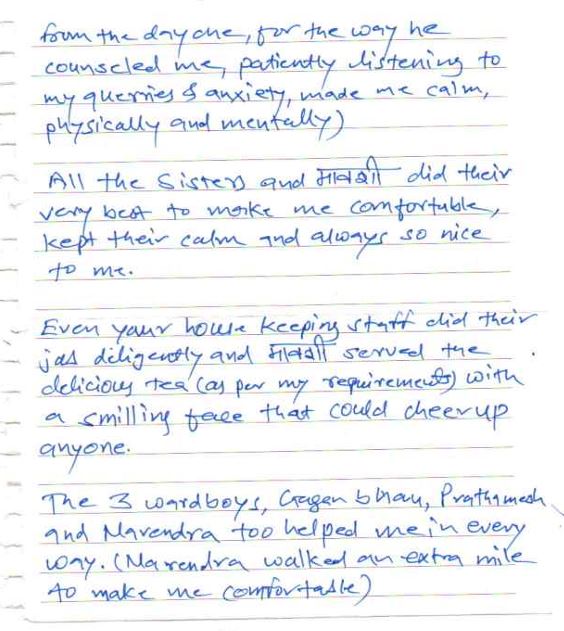 from the day one, for the way he
counseled me, patiently listening to
my querries & anxiety, made me calm,
physically and mentally)
All the Sisters and मावशी did their
very best to make me comfortable,
kept their calm and always so nice
to me.
Even your house keeping staff did their
jos diligently and मावशी served the
delicious tea (as per my requirements) with
a smilling face that could cheerup
anyone.
The 3 wardboys, Gagan bhau, Prathamesh
and Narendra too helped me in every
way. (Narendra walked an extra mile
to make me comfortable)